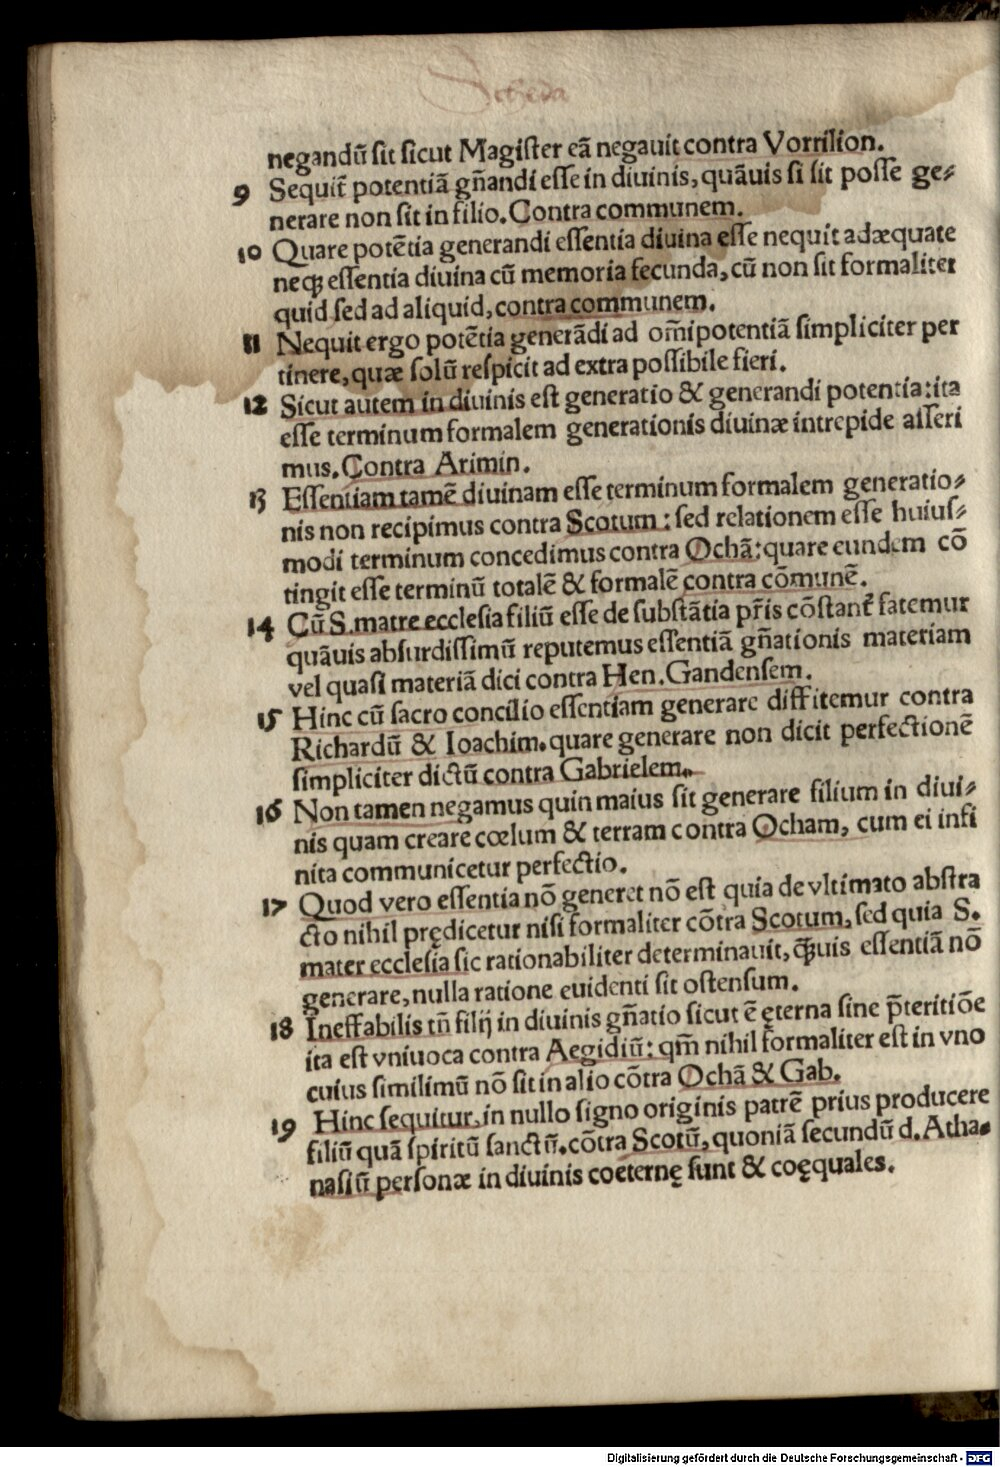 Scheda
negandū ſit ſicut Magiſter eā negauit contra Vorrilion.
9 Sequit̄ potentiā gn̄andi eſſe in diuinis, quāuis ſi ſit poſſe ge⸗
nerare non ſit in filio. Contra communem.
10 Quare potētia generandi eſſentia diuina eſſe nequit adæquate
neqꝫ eſſentia diuina cū memoria fecunda, cū non ſit formaliter
quid ſed ad aliquid, contra communem.
11 Nequit ergo potētia generādi ad om̄ipotentiā ſimpliciter per
tinere, quæ ſolū reſpicit ad extra poſſibile fieri.
12 Sicut autem in diuinis eſt generatio & generandi potentia: ita
eſſe terminum formalem generationis diuinæ intrepide aſſeri
mus. Contra Arimin.
13 Eſſentiam tamē diuinam eſſe terminum formalem generatio⸗
nis non recipimus contra Scotum: ſed relationem eſſe huiuſ⸗
modi terminum concedimus contra Ochā: quare eundem cō
tingit eſſe terminū totalē & formalē contra cōmunē.
14 Cū S. matre eccleſia filiū eſſe de ſubſtātia pr̄is cōſtant̄ fatemur
quāuis abſurdiſſimū reputemus eſſentiā gn̄ationis materiam
vel quaſi materiā dici contra Hen. Gandenſem.
15 Hinc cū ſacro concilio eſſentiam generare diffitemur contra
Richardū & Ioachim. quare generare non dicit perfectionē
ſimpliciter dictū contra Gabrielem.
16 Non tamen negamus quin maius ſit generare filium in diui⸗
nis quam creare cœlum & terram contra Ocham, cum ei infi
nita communicetur perfectio.
17 Quod vero eſſentia nō generet nō eſt quia de vltimato abſtra
cto nihil prędicetur niſi formaliter cōtra Scotum, ſed quia S.
mater eccleſia ſic rationabiliter determinauit, qꝫuis eſſentiā nō
generare, nulla ratione euidenti ſit oſtenſum.
18 Ineffabilis tn̄ filij in diuinis gn̄atio ſicut ē ęterna ſine p̄teritiōe
ita eſt vniuoca contra Aegidiū: qm̄ nihil formaliter eſt in vno
cuius ſimilimū nō ſit in alio cōtra Ochā & Gab.
19 Hinc ſequitur, in nullo ſigno originis patrē prius producere
filiū quā ſpiritū ſanctū. cōtra Scotū, quoniā ſecundū d. Atha⸗
naſiū perſonæ in diuinis coeternę ſunt & coęquales.
Digitalisierung gefördert durch die Deutsche Forschungsgemeinschaft - DFG